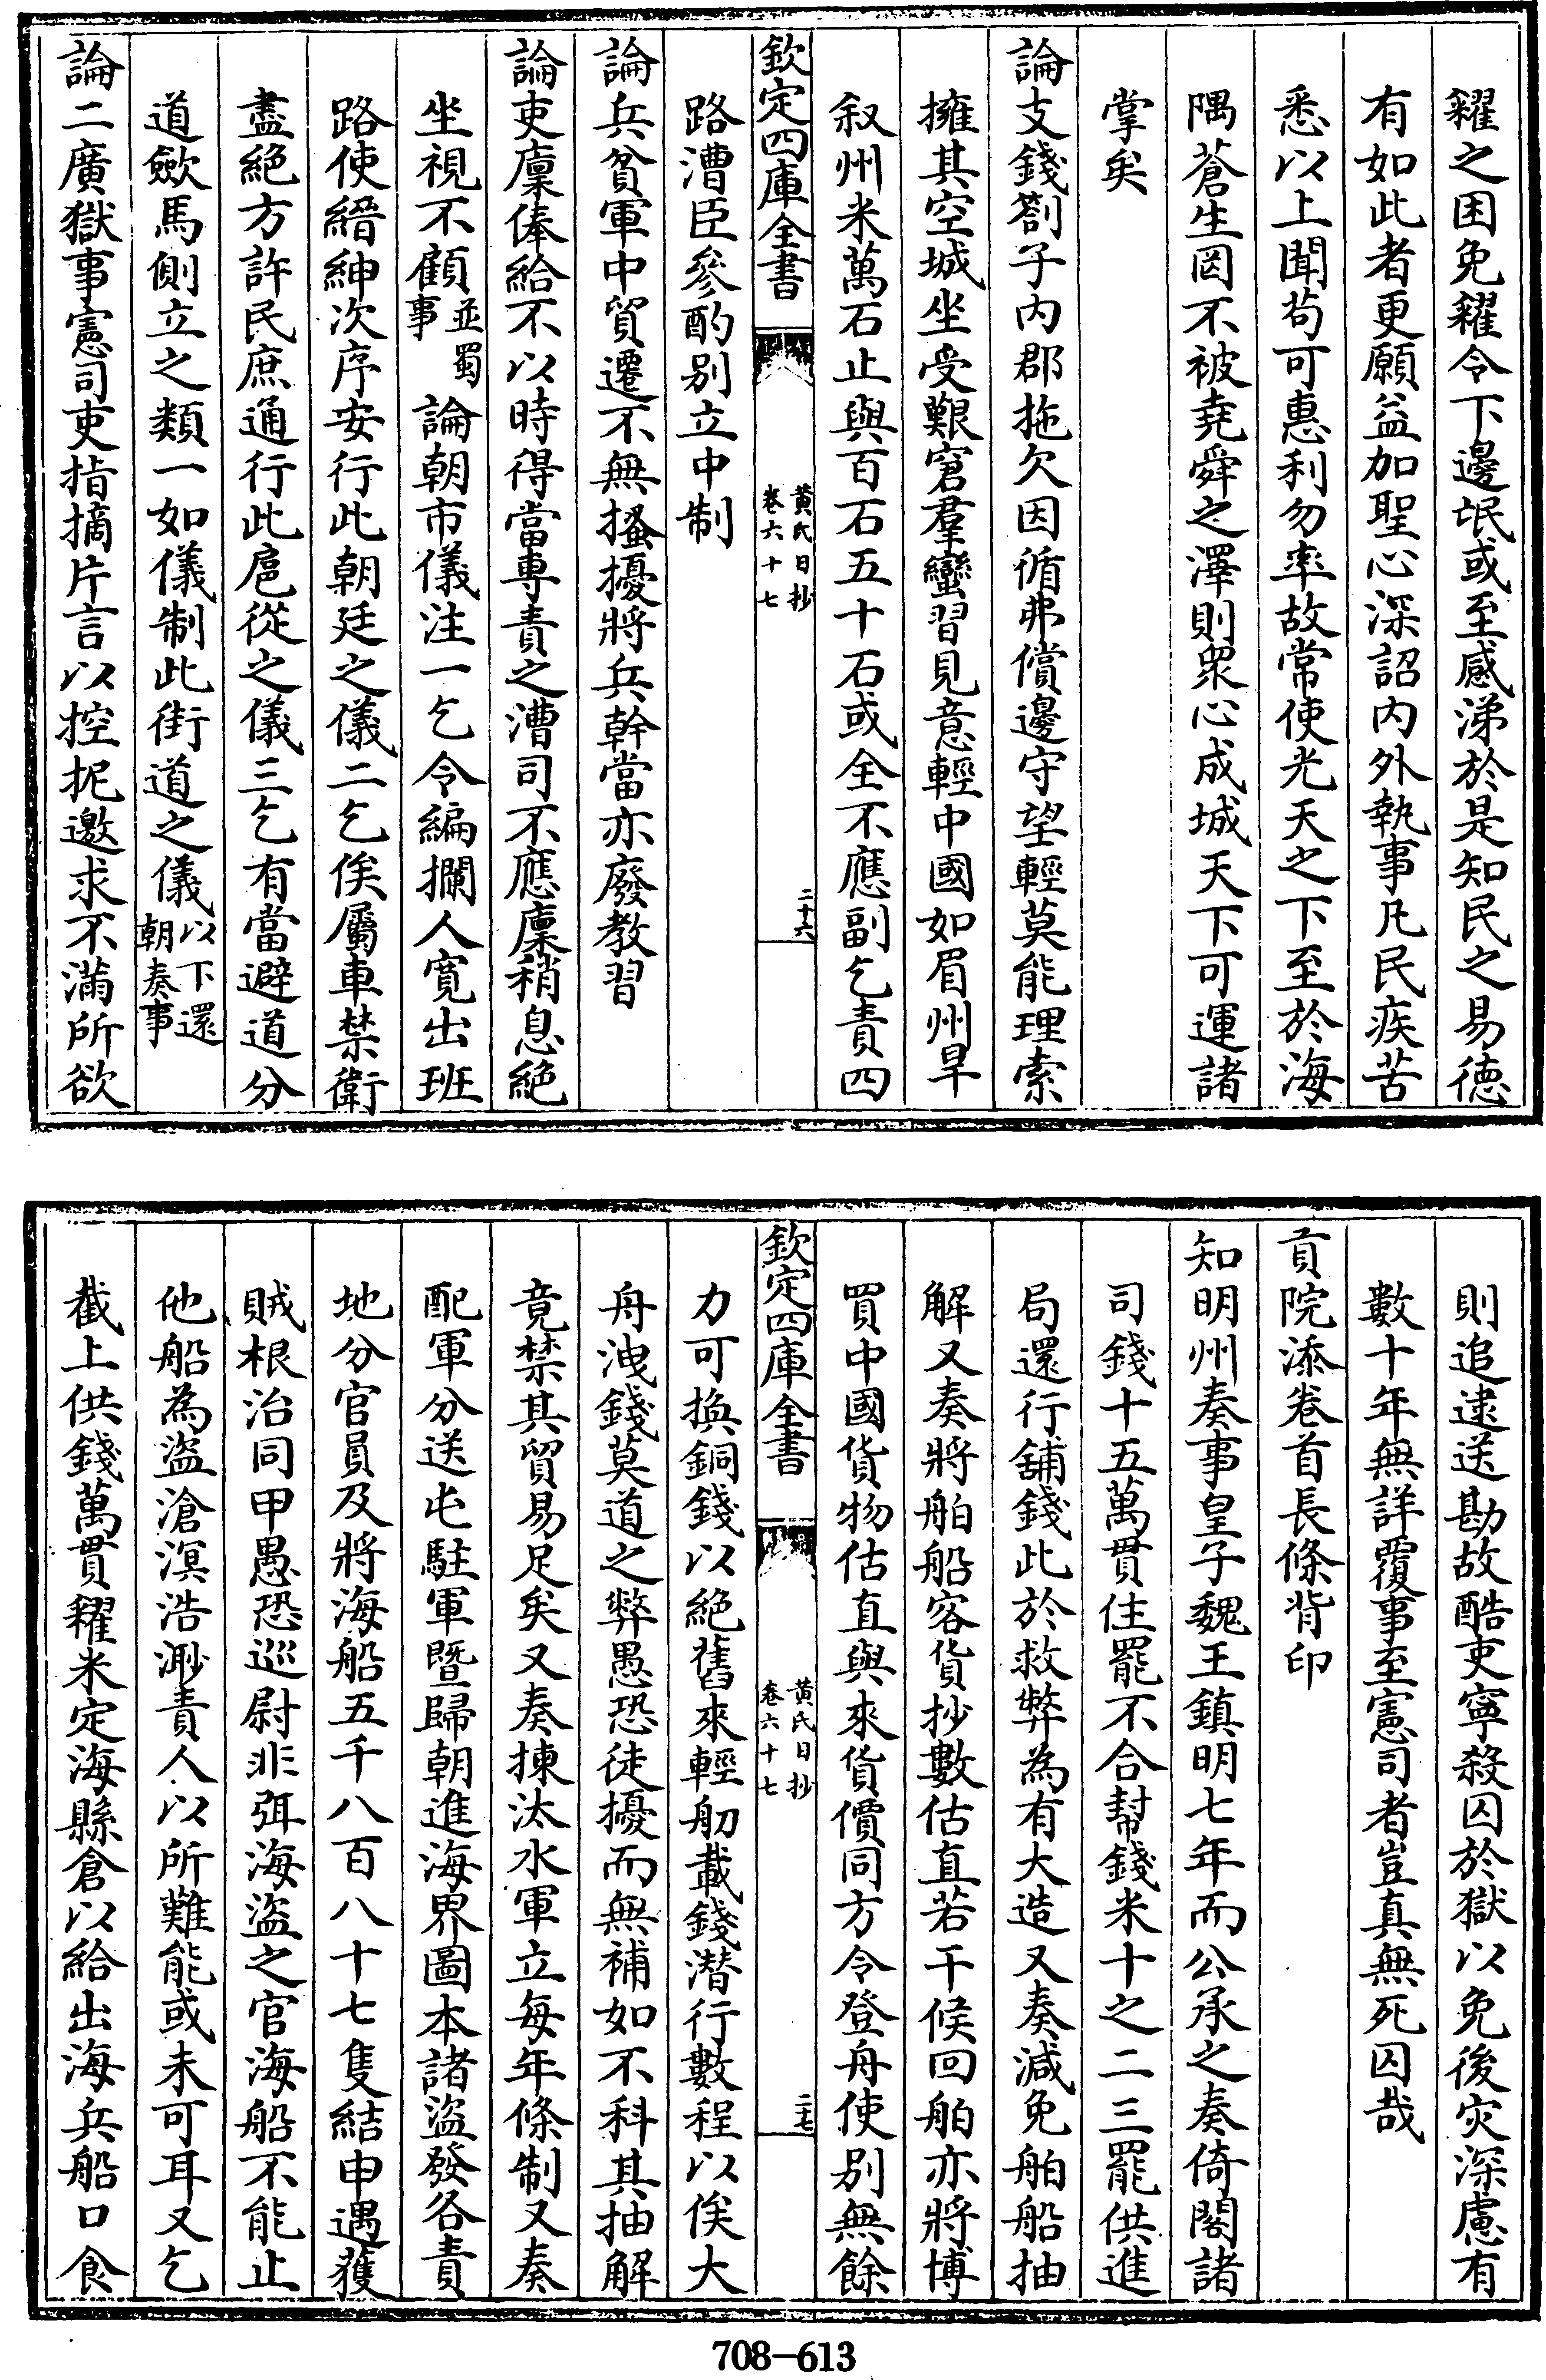 糴之困免糴令下邊氓或至感涕於是知民之易德
有如此者更願益加聖心深詔内外執事凡民疾苦
悉以上聞茍可惠利勿率故常使光天之下至於海
隅蒼生罔不被堯舜之澤則衆心成城天下可運諸
掌矣
論支錢劄子内郡拖欠因循弗償邊守望輕莫能理索
擁其空城坐受艱窘羣蠻習見意輕中國如眉州旱
叙州米萬石止與百石五十石或全不應副乞責四
欽定四庫全書
黄氏日抄
卷六十七
二十六
路漕臣參酌别立中制
論兵貧軍中貿遷不無搔擾將兵幹當亦廢教習
論吏廩俸給不以時得當專責之漕司不應廩稍息絶
坐視不顧並蜀事 論朝市儀注一乞令編攔人寛出班
路使縉紳次序安行此朝廷之儀二乞俟屬車禁衛
盡絶方許民庶通行此扈從之儀三乞有當避道分
道歛馬側立之類一如儀制此街道之儀以下還朝奏事
論二廣獄事憲司吏指摘片言以控扼邀求不滿所欲
則追逮送勘故酷吏寧殺囚於獄以免後灾深慮有
數十年無詳覆事至憲司者豈真無死囚哉
貢院添卷首長條背印
知明州奏事皇子魏王鎮明七年而公承之奏倚閣諸
司錢十五萬貫住罷不合幇錢米十之二三罷供進
局還行舖錢此於救弊為有大造又奏減免舶船抽
解又奏將舶船客貨抄數估直若干候回舶亦將博
買中國貨物估直與來貨價同方令登舟使别無餘
欽定四庫全書
黄氏日抄
卷六十七
二十七
力可換銅錢以絶舊來輕舠載錢潜行數程以俟大
舟洩錢莫道之弊愚恐徒擾而無補如不科其抽解
竟禁其貿易足矣又奏揀汰水軍立每年條制又奏
配軍分送屯駐軍暨歸朝進海界圖本諸盜發各責
地分官員及將海船五千八百八十七隻結申遇獲
賊根治同甲愚恐巡尉非弭海盜之官海船不能止
他船為盜滄溟浩渺責人以所難能或未可耳又乞
截上供錢萬貫糴米定海縣倉以給出海兵船口食
708-613